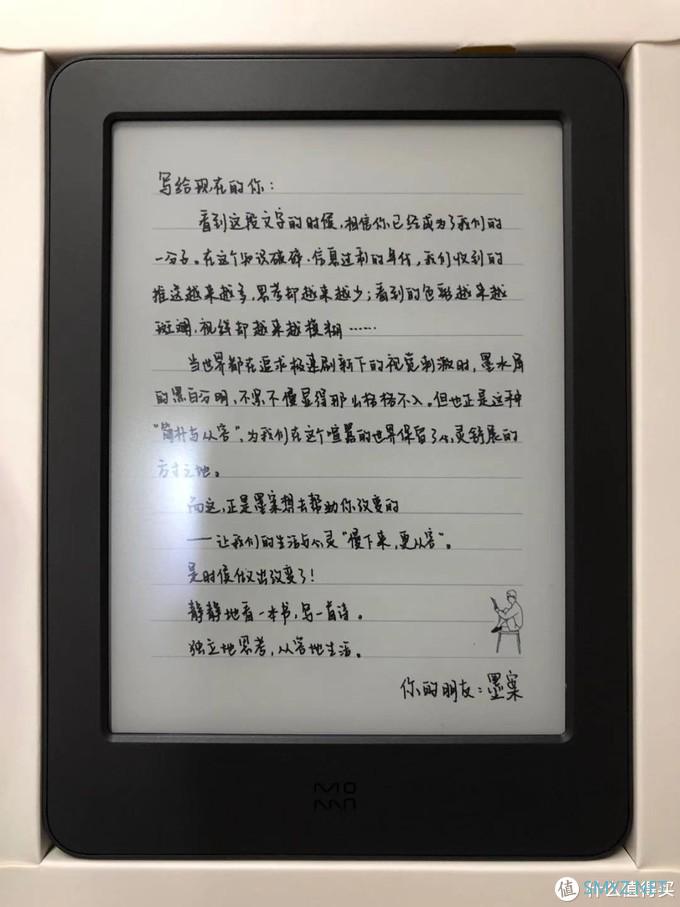 写给现在的你：
看到这段文字的时候，相信你已经成为了我们的
一分子。在这个知识破碎、信息过剩的年代，我们收到的
推送越来越多，思考却越来越少；看到的色彩越来越
斑斓，视线却越来越模糊……
当世界都在追求极速刷新下的视觉刺激时，墨水屏
的黑白分明、不紧不慢显得那么格格不入。但也正是这种
“简朴与从容”，为我们在这个喧嚣的世界保留了心灵舒展的
方寸之地。
而这，正是墨案想去帮助你改变的
——让我们的生活与心灵“慢下来，更从容”。
是时候做出改变了！
静静地看一本书，写一首诗。
独立地思考，从容地生活。
你的朋友：墨案
MO
AN
值 什么值得买
SMYZ.NET